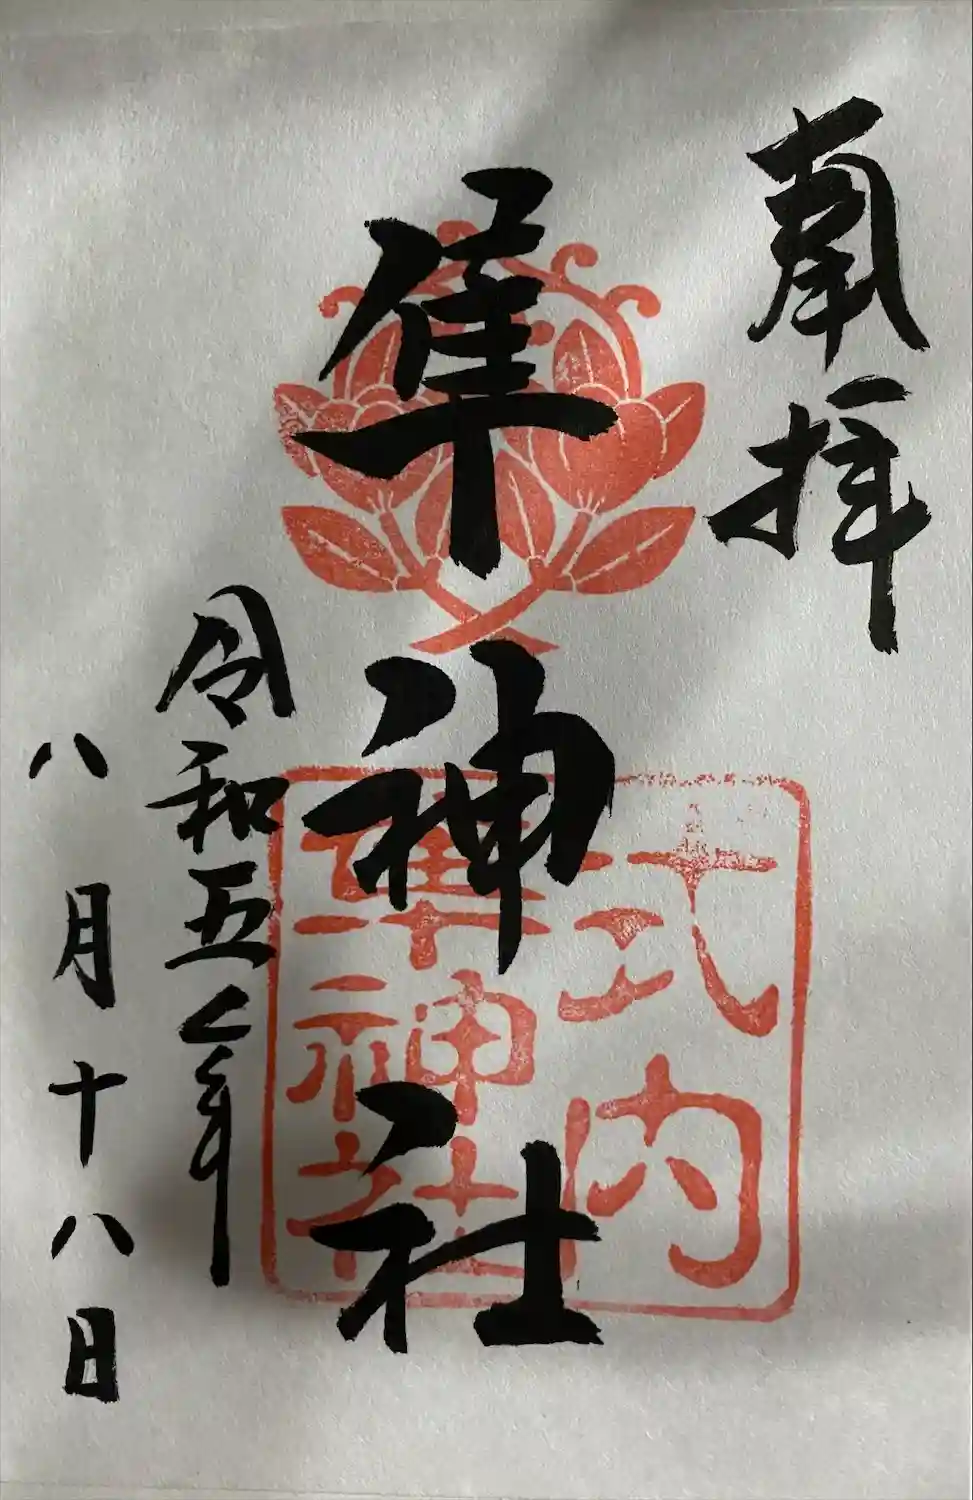 奉拝
隼神社
式内
隼神社
令和五年
八月十八日